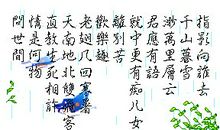 問世間
情是何物
直教生死相許
天南地北雙飛客
老翅几回寒暑
歡樂趣
離別苦
就中更有痴儿女
君應有語
渺萬里層雲
千山暮雪
指影向誰去